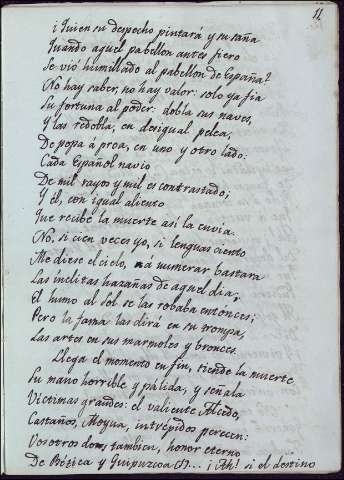 11
¡Quien su despecho pintará y su saña
Quando aquel pabellon antes fiero
Se vió humillado al pabellon de España?
No hay saber, no hay valor: solo ya fia
Su fortuna al poder: dobla sus naves,
Y las redobla, en desigual pelea,
De popa á proa, en uno y otro lado.
Cada Español navio
De mil rayos y mil es contrastado;
Y él, con igual aliento
Que recibe la muerte así la envia.
No, si cien veces yo, si lenguas ciento
Me diese el cielo, á numerar bastara
Las inclitas hazañas de aquel dia;
El humo al sol se las robaba entonces;
Pero la fama las dirá en su trompa,
Las artes en sus marmoles y bronces.
Llega el momento en fin, tiende la muerte
Su mano horrible y pálida, y señala
Victimas grandes: el valiente Alcedo,
Castaños, Moyua, intrépidos perecen:
Vosotros dos, tambien, honor eterno
De Bética y Guipuzcoa ... ¡Ah! si el destino